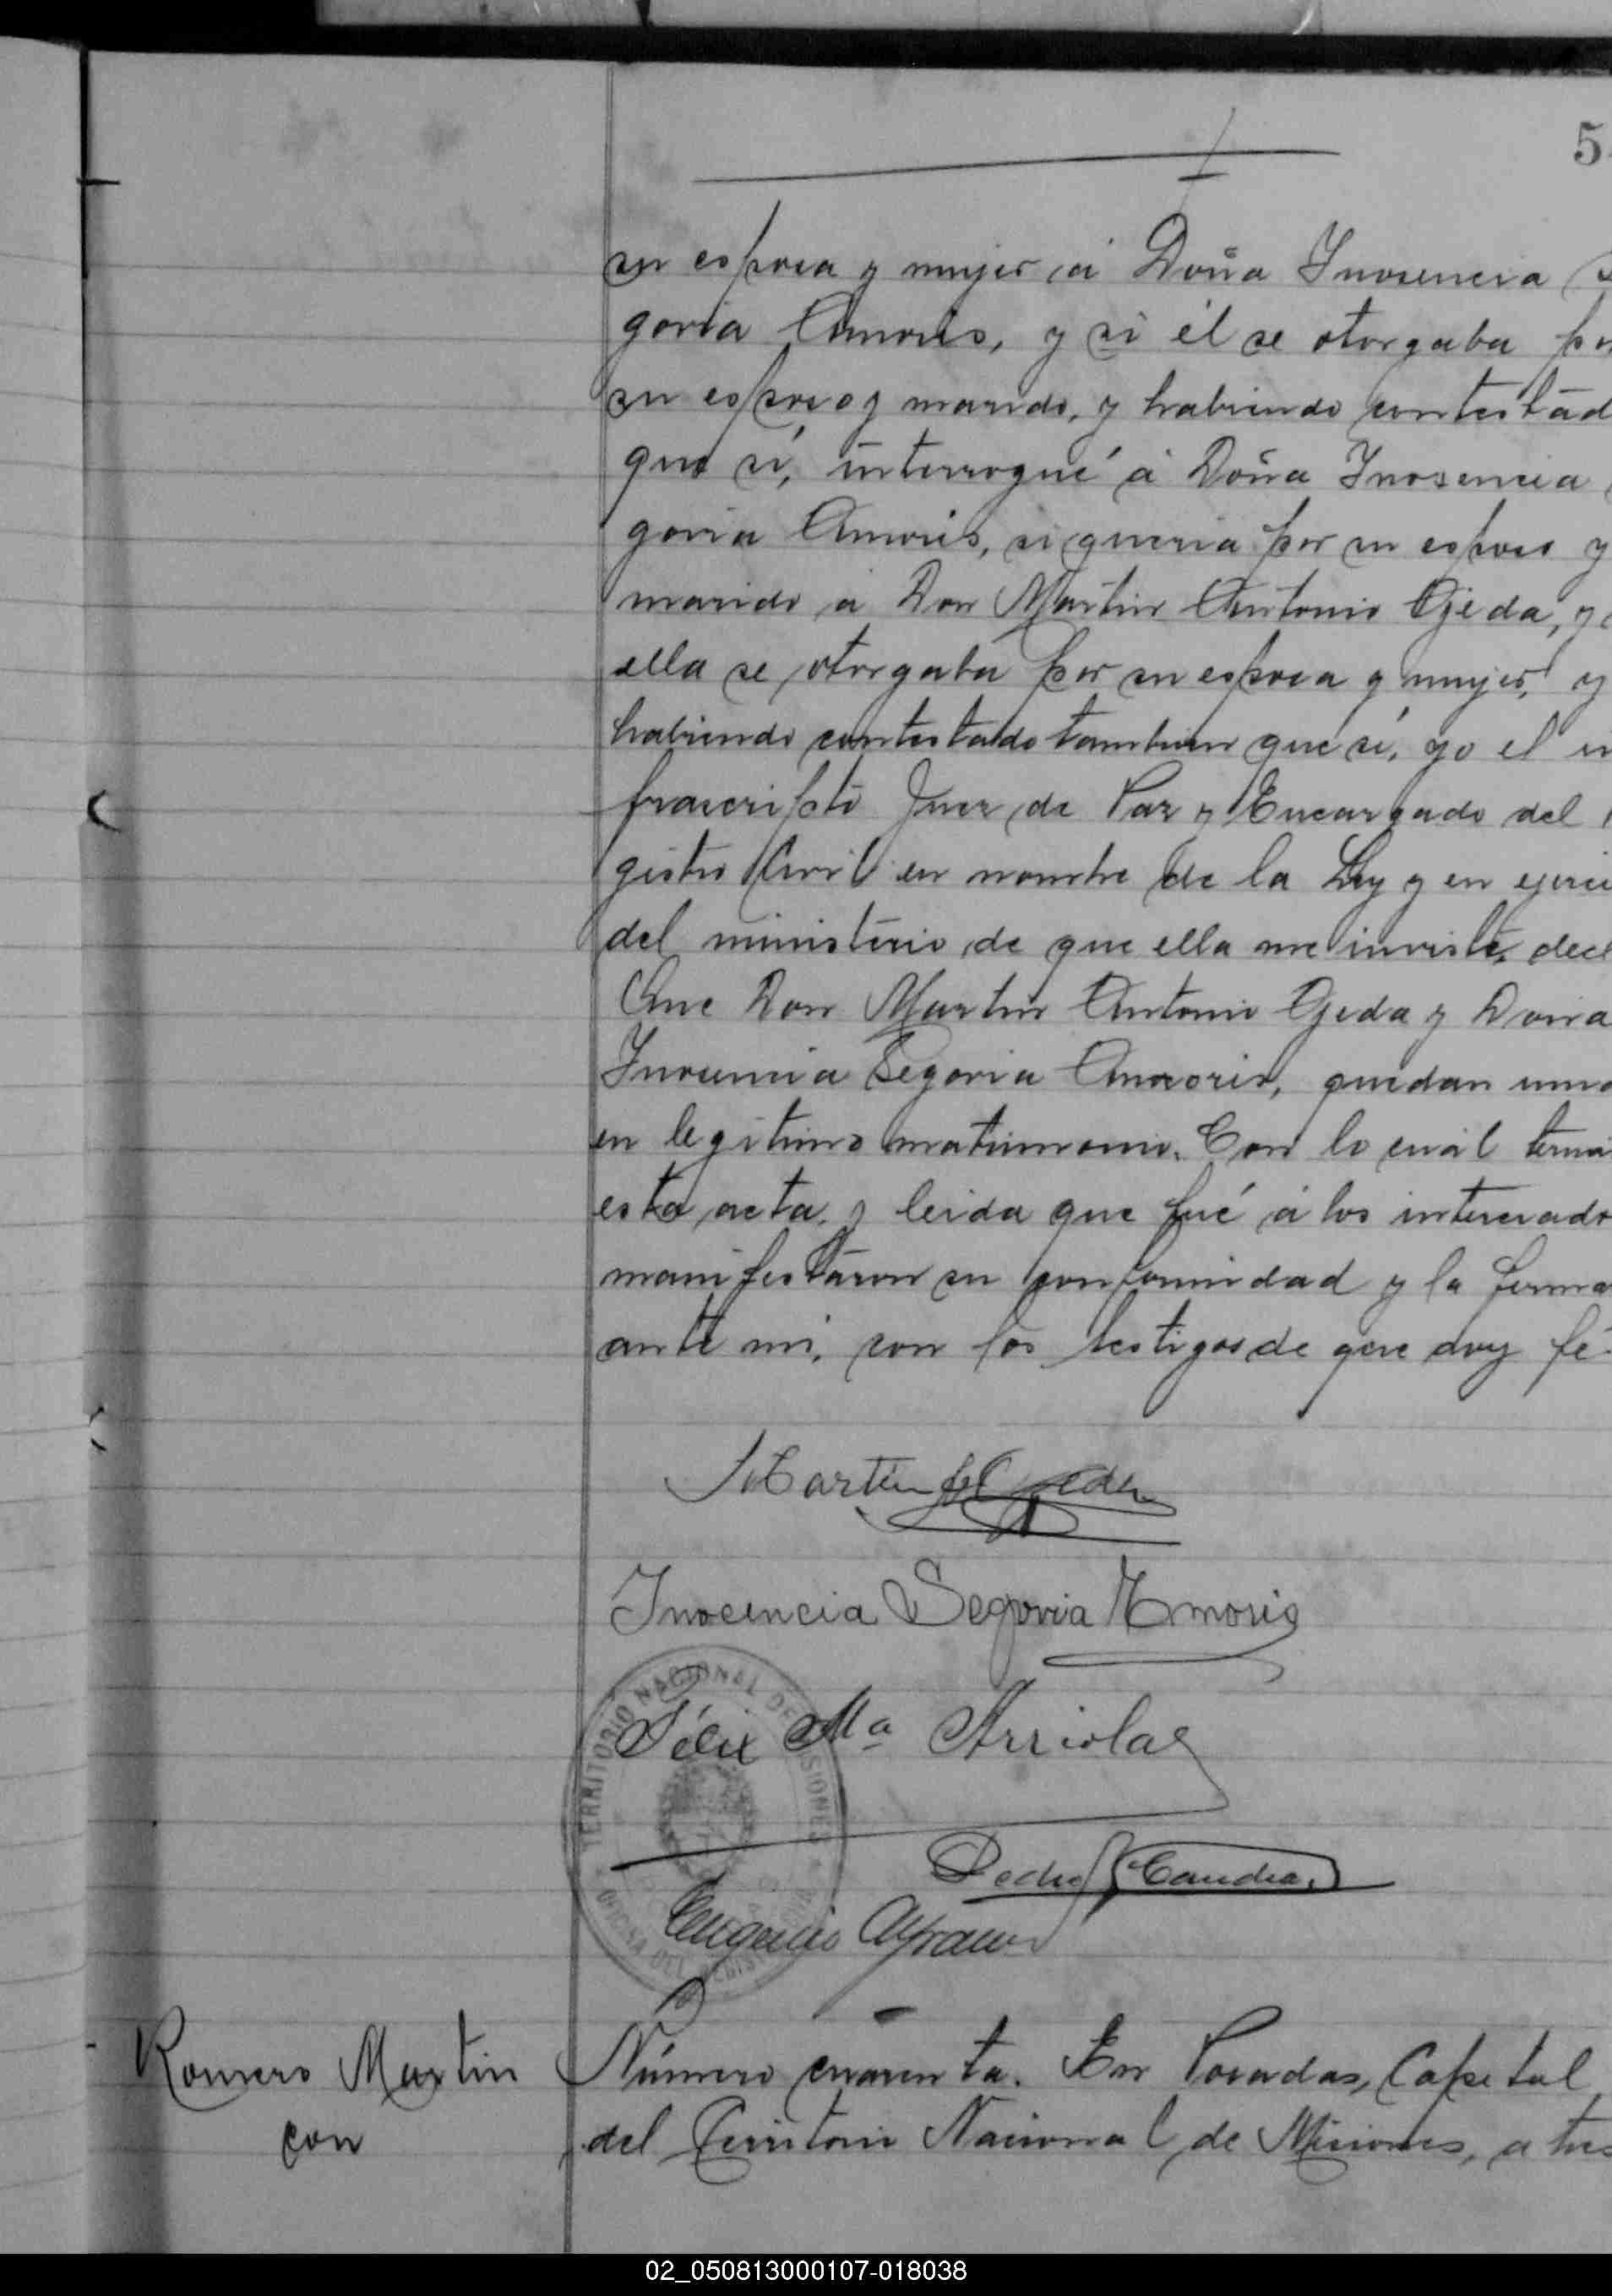 5
su esposa y mujer á Doña Inosencia S
govia Amoris, y si él se otorgaba po
su esposo y marido, y habiendo contestad
que sí, interrogué á Doña Inosencia
govia Amoris, si queria por su esposo y
marido á Don Martin Antonio Ojeda, y
ella se otorgaba por su esposa y mujer, y
habiendo contestado tambien que sí, yo el in
frascripto Juez de Paz y Encargado del
gistro Civil en nombre de la Ley y en ejerci
del ministerio de que ella me inviste, decl
Que Don Martin Antonio Ojeda y Doña
Inosencia Segovia Amoris, quedan unid
en legitimo matrimonio. Con lo cuál termi
esta acta, y leida que fué á los interesado
manifestaron su conformidad y la firma
ante mi, con los testigos de que doy fé.
Martin A Ojeda
Inocencia Segovia Amoris
Félix Mª Arriola
TERRITORIO NACIONAL DE MISIONES
OFICINA DEL REGISTRO
Pedro
Eugenio
Romero Martin
con
Número cuarenta. En Posadas, Capital
del Territorio Nacional de Misiones, a tres
02_050813000107-018038